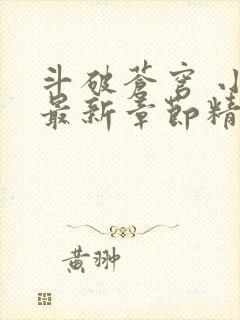 斗破苍穹 小
最新章节精
黄翀